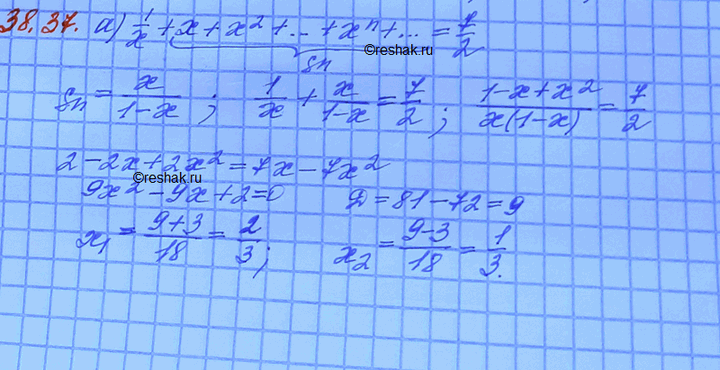 38.37. а) 1/x + x + x² + ... + xⁿ + ... = 7/2
©reshak.ru
Sn
Sn = x/(1-x) ; 1/x + x/(1-x) = 7/2 ; (1-x+x²)/(x(1-x)) = 7/2
2-2x+2x² = 7x-7x²
©reshak.ru
9x²-9x+2=0 D=81-72=9
x₁ = (9+3)/18 = 2/3; x₂ = (9-3)/18 = 1/3.